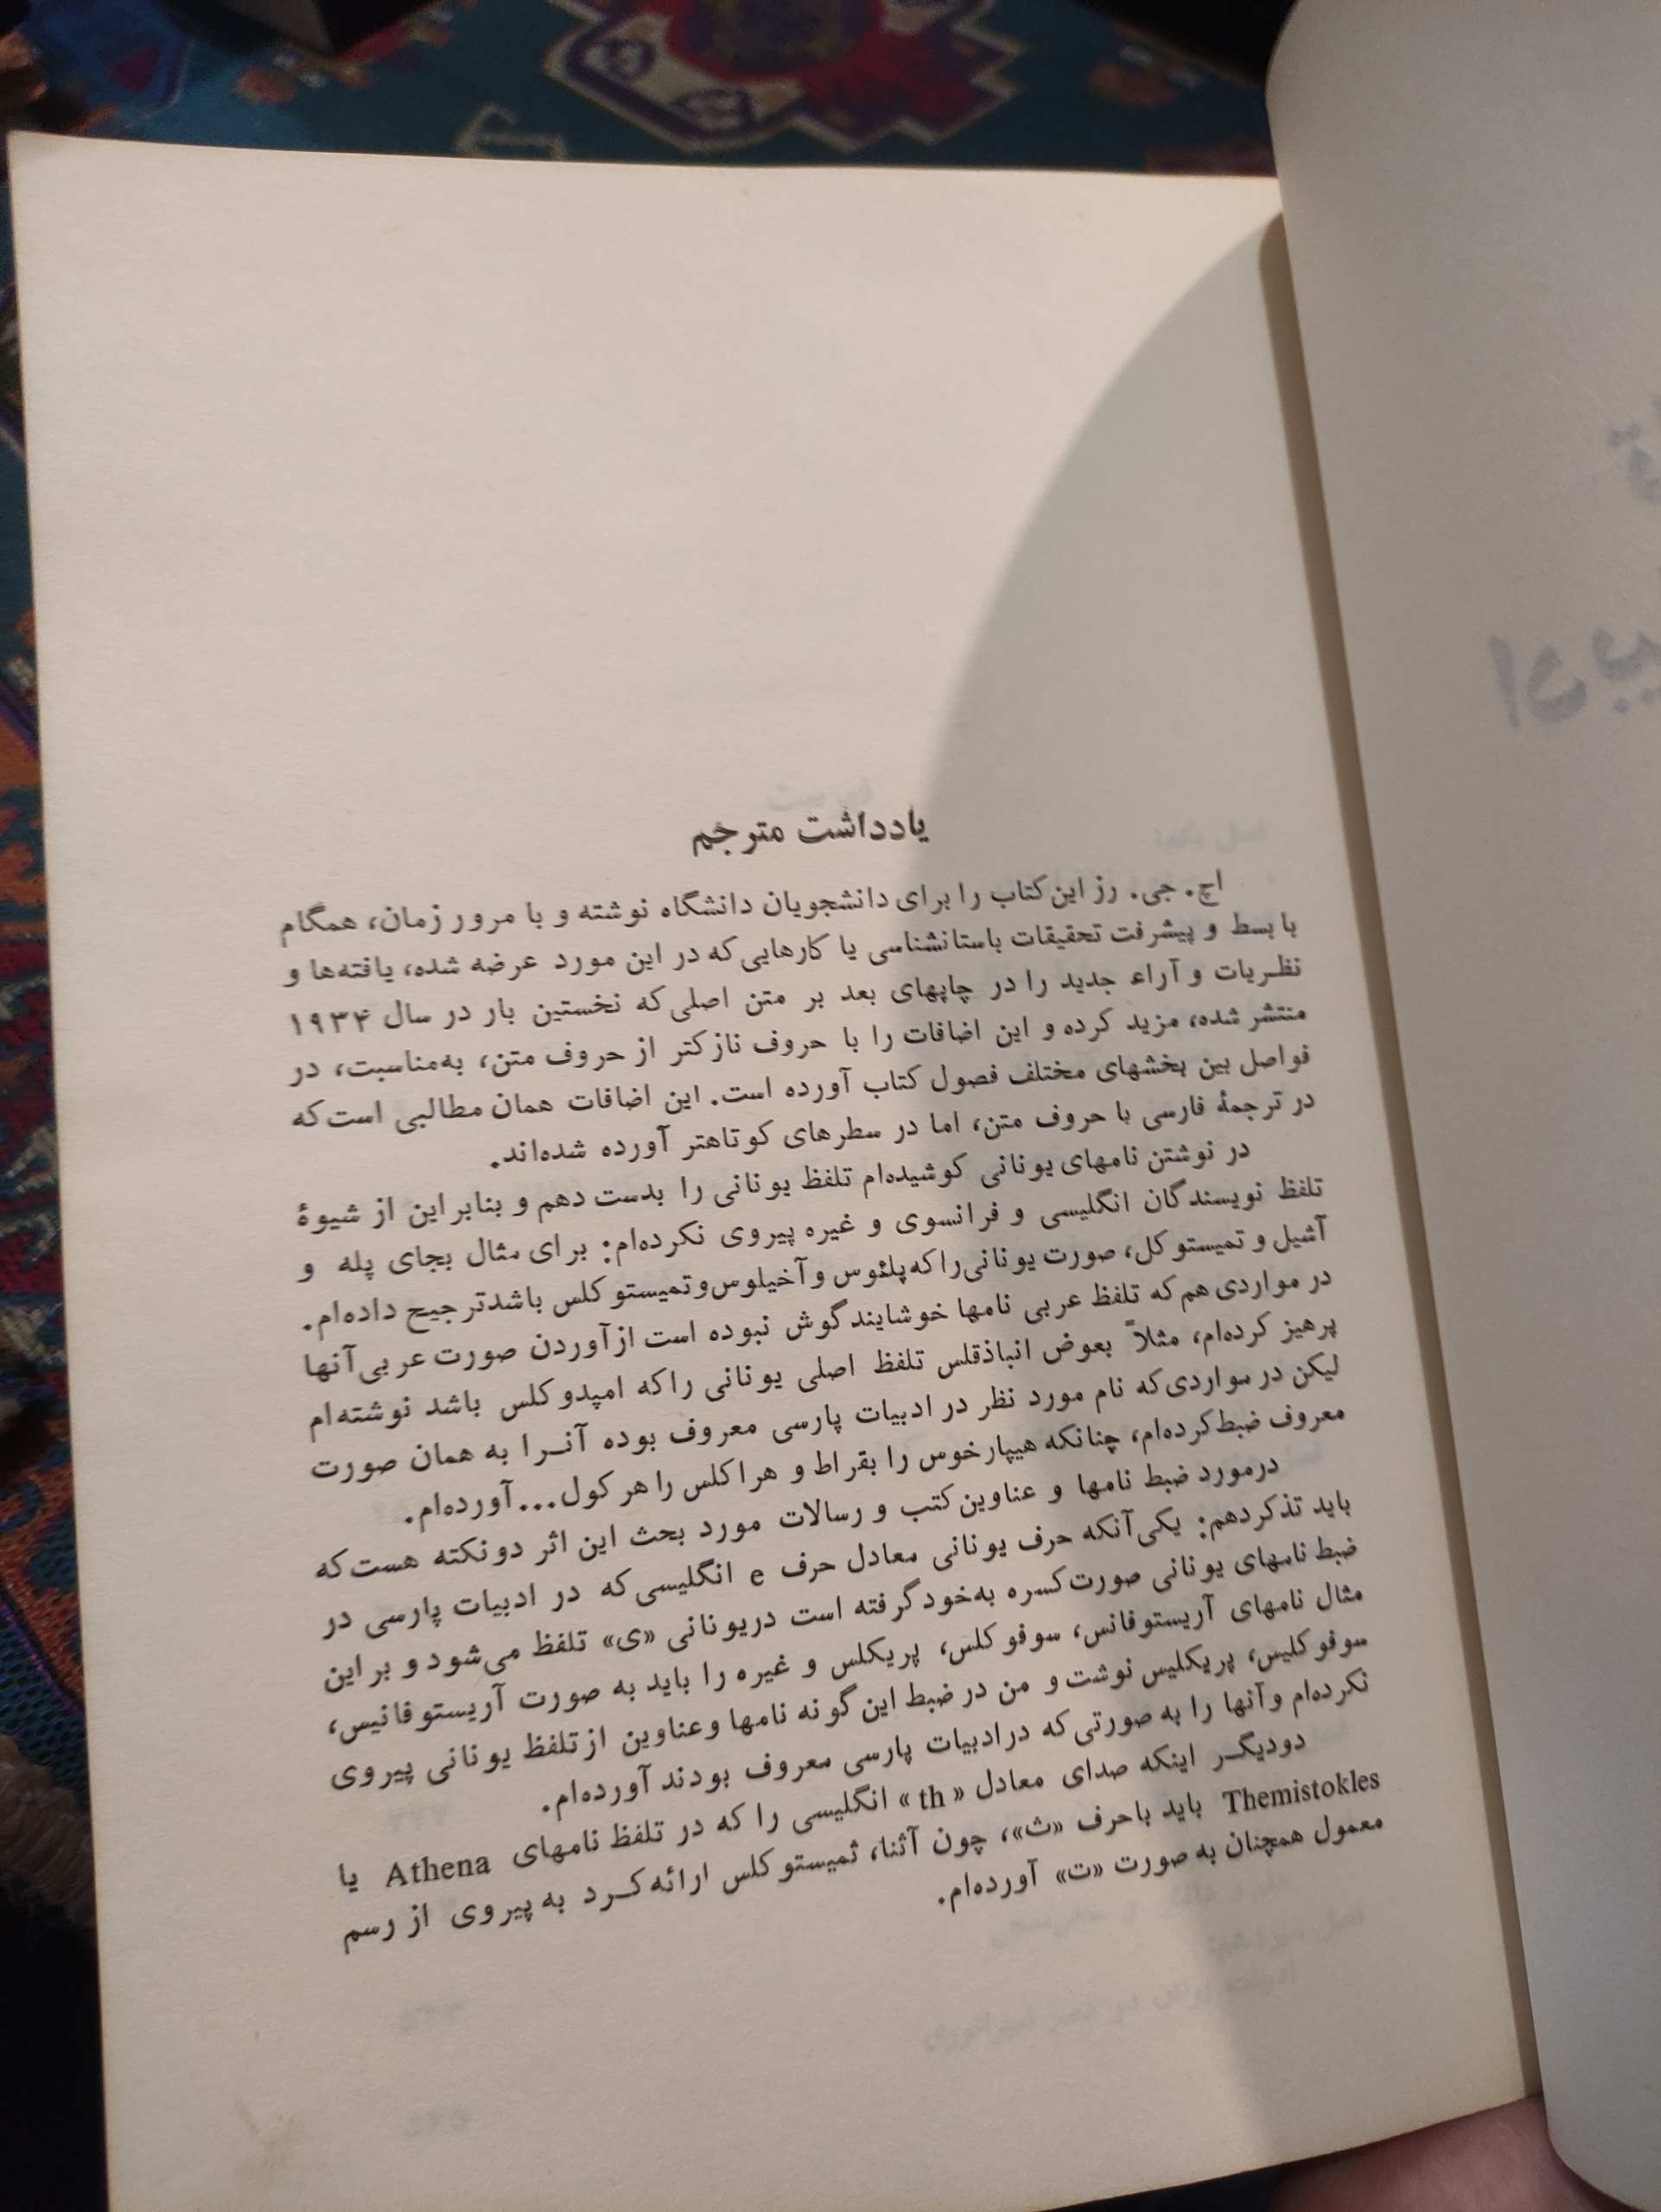 یادداشت مترجم
اچ. جی. رز این کتاب را برای دانشجویان دانشگاه نوشته و با مرور زمان، همگام
با بسط و پیشرفت تحقیقات باستانشناسی یا کارهایی که در این مورد عرضه شده، یافته‌ها و
نظریات و آراء جدید را در چاپهای بعد بر متن اصلی که نخستین بار در سال ۱۹۳۴
منتشر شده، مزید کرده و این اضافات را با حروف نازکتر از حروف متن، به‌مناسبت، در
فواصل بین بخشهای مختلف فصول کتاب آورده است. این اضافات همان مطالبی است که
در ترجمهٔ فارسی با حروف متن، اما در سطرهای کوتاهتر آورده شده‌اند.
در نوشتن نامهای یونانی کوشیده‌ام تلفظ یونانی را بدست دهم و بنابراین از شیوهٔ
تلفظ نویسندگان انگلیسی و فرانسوی و غیره پیروی نکرده‌ام: برای مثال بجای پله و
آشیل و تمیستوکل، صورت یونانی را که پلئوس و آخیلوس و تمیستوکلس باشد ترجیح داده‌ام.
در مواردی هم که تلفظ عربی نامها خوشایند گوش نبوده است از آوردن صورت عربی آنها
پرهیز کرده‌ام، مثلاً بعوض انباذقلس تلفظ اصلی یونانی را که امپدوکلس باشد نوشته‌ام
لیکن در مواردی که نام مورد نظر در ادبیات پارسی معروف بوده آنرا به همان صورت
معروف ضبط کرده‌ام، چنانکه هیپارخوس را بقراط و هراکلس را هرکول... آورده‌ام.
درمورد ضبط نامها و عناوین کتب و رسالات مورد بحث این اثر دو نکته هست که
باید تذکر دهم: یکی آنکه حرف یونانی معادل حرف e انگلیسی که در ادبیات پارسی در
ضبط نامهای یونانی صورت کسره به‌خود گرفته است در یونانی «ی» تلفظ می‌شود و بر این
مثال نامهای آریستوفانس، سوفوکلس، پریکلس و غیره را باید به صورت آریستوفانیس،
سوفوکلیس، پریکلیس نوشت و من در ضبط این گونه نامها و عناوین از تلفظ یونانی پیروی
نکرده‌ام و آنها را به صورتی که در ادبیات پارسی معروف بودند آورده‌ام.
دودیگر اینکه صدای معادل «th» انگلیسی را که در تلفظ نامهای Athena یا
Themistokles باید با حرف «ث»، چون آثنا، ثمیستوکلس ارائه کرد به پیروی از رسم
معمول همچنان به صورت «ت» آورده‌ام.